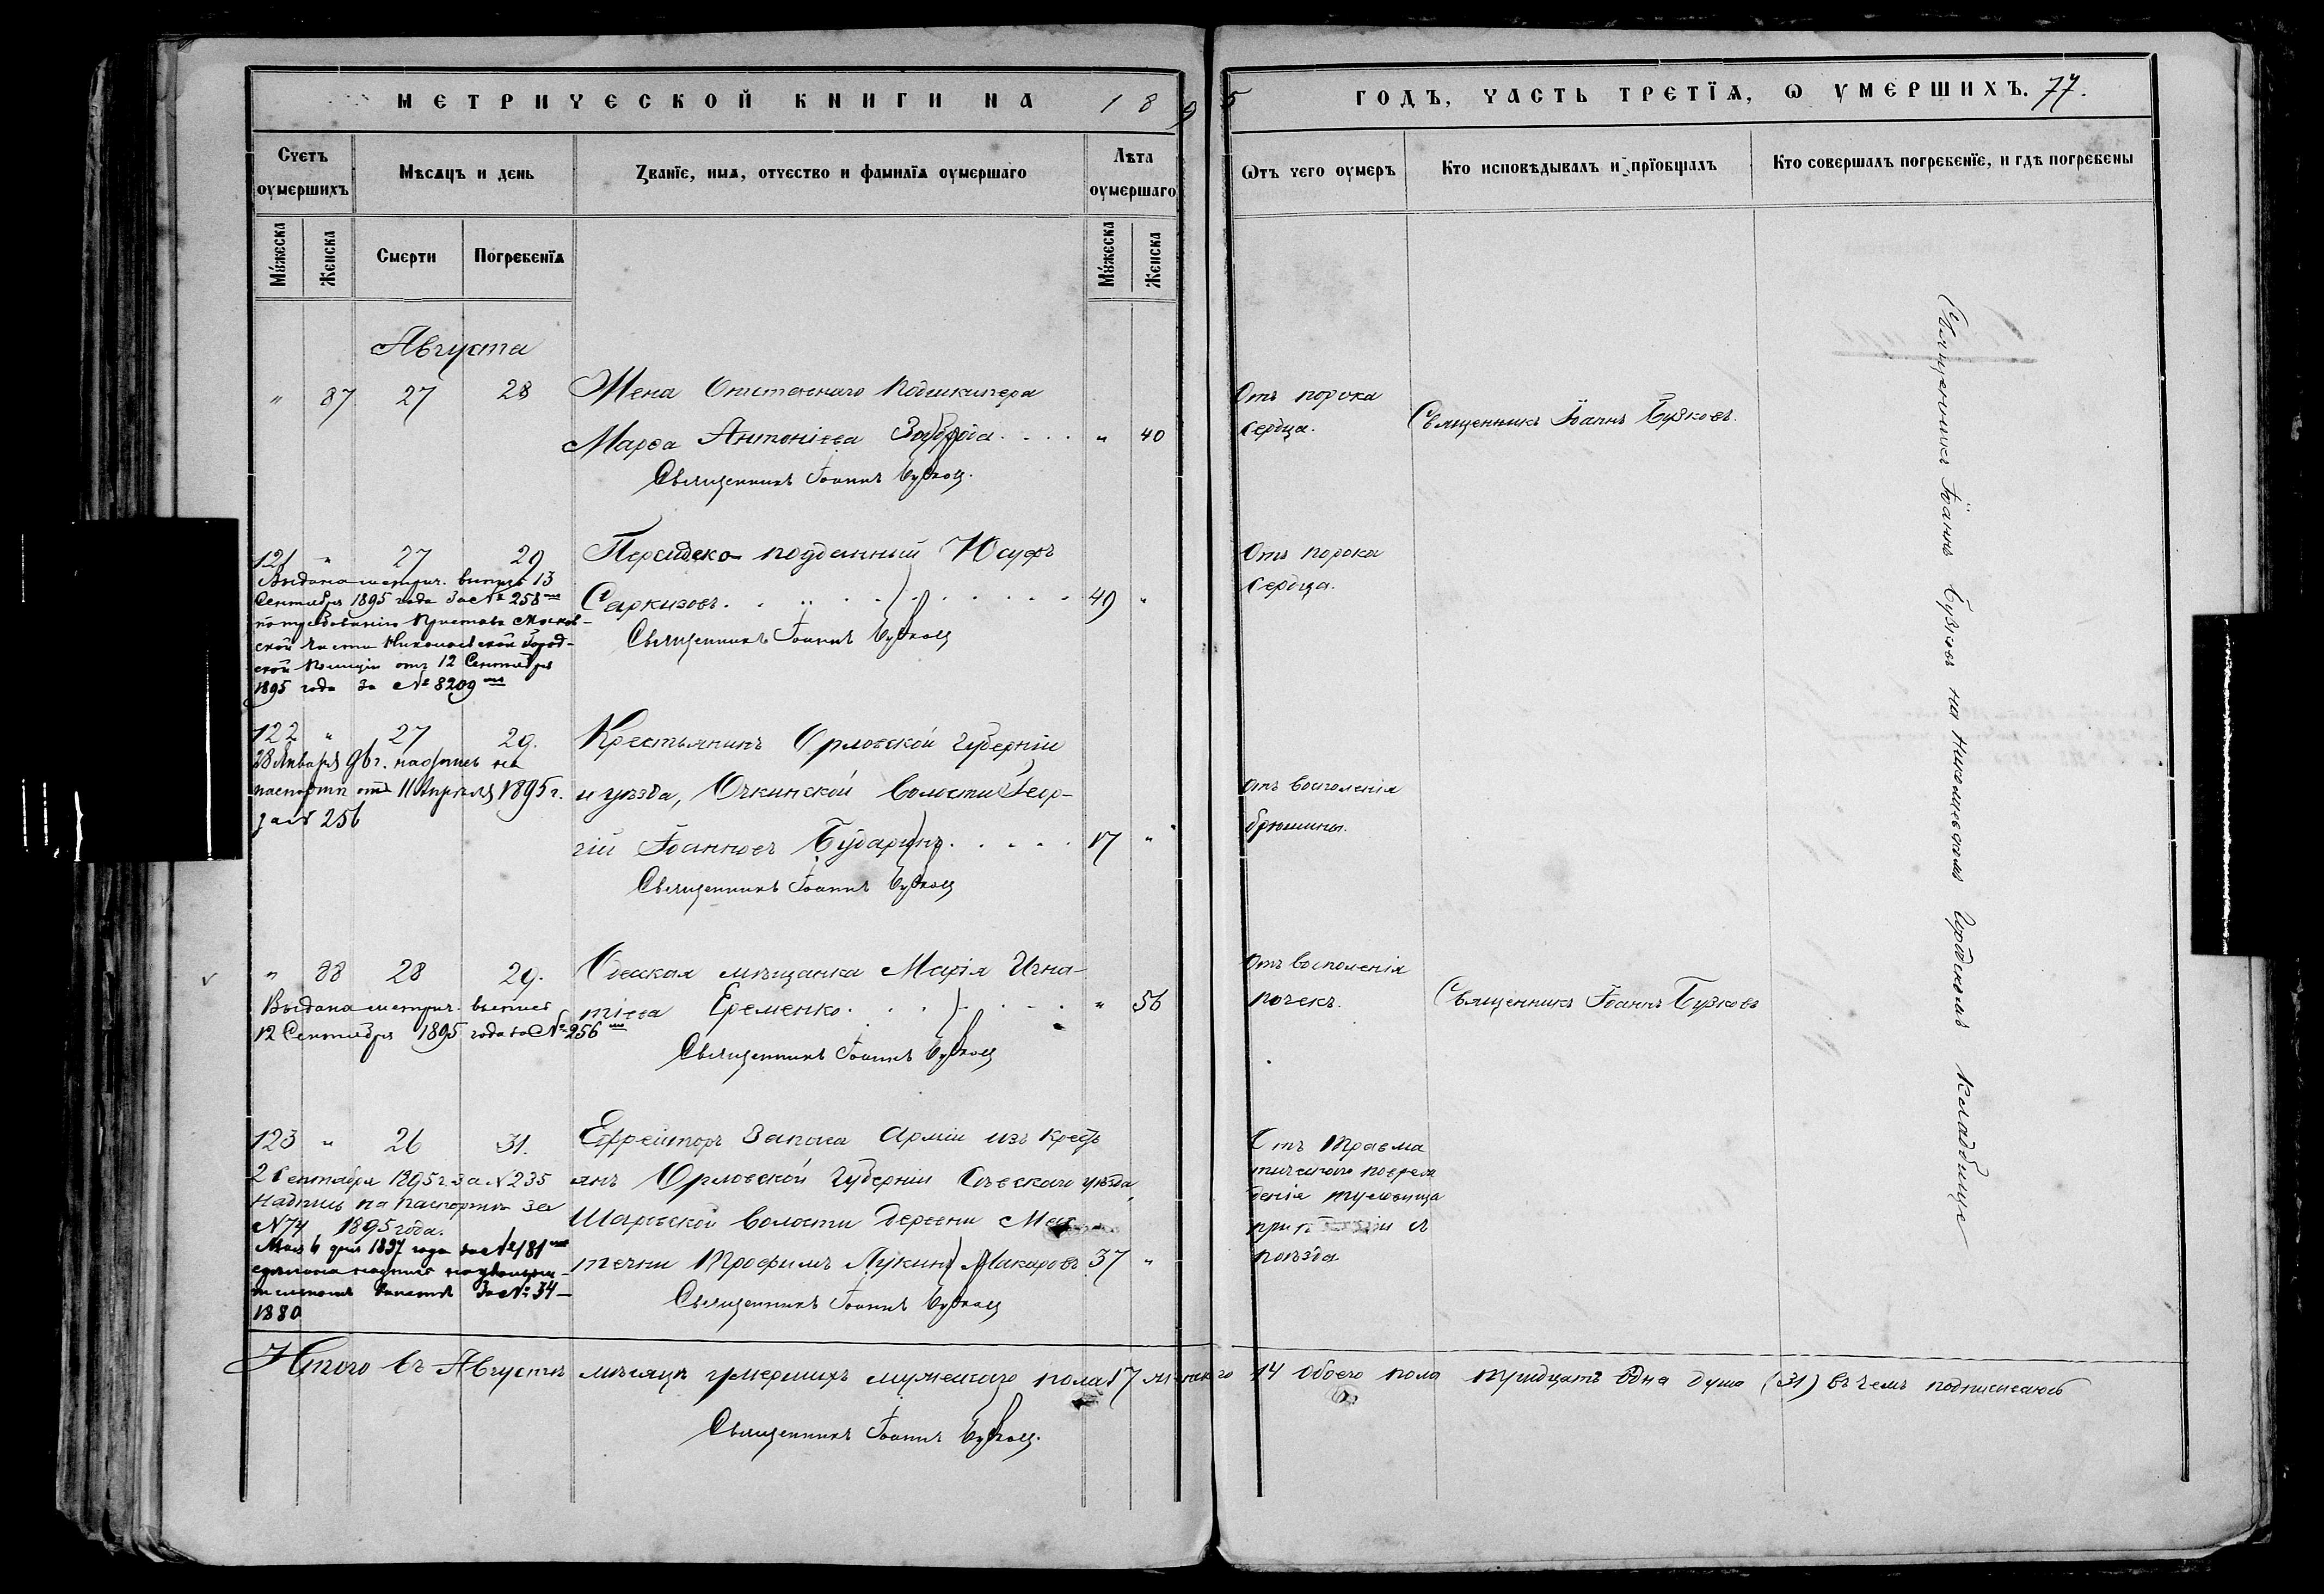 МЕТРИЧЕСКОЙ КНИГИ НА 1895 ГОДЪ, ЧАСТЬ ТРЕТІѦ, Ѡ УМЕРШИХЪ. 77.
Счетъ оумершихъ
Мѣсяцъ и день
Званїе, имѧ, отчество и фамилїѧ оумершаго
Лѣта оумершаго
Ѿтъ чего оумеръ
Кто исповѣдывалъ и прїобщалъ
Кто совершалъ погребенїе, и гдѣ погребены
Мужеска
Женска
Смерти
Погребенїѧ
Мужеска
Женска
Августа
" 87 27 28 Жена Отставнаго Подшкипера
Марѳа Антоніева " 40
Отъ порока
сердца.
Священникъ Іоаннъ Бузковъ.
Священникъ Іоаннъ Бузковъ.
121 " 27 29 Персидско-подданный Юсуфъ
Саркизовъ 49 "
Отъ порока
сердца.
Священникъ Іоаннъ Бузковъ
Выдана метрич. выпись 13
Сентября 1895 года за № 258
по требованію Пристава Москов-
ской части Николаевской Город-
ской Полиціи отъ 12 Сентября
1895 года за № 8209
122 " 27 29. Крестьянинъ Орловской губерніи
и уѣзда, Очкинской волости Геор-
гій Іоанновъ Бударинъ 17 "
Отъ воспаленія
брюшины.
Священникъ Іоаннъ Бузковъ
28 Января 96 г. надпись на
паспортѣ отъ 11 Апрѣля 1895 г.
за № 256
" 88 28 29. Одесская мѣщанка Марія Игна-
тіева Еременко " 56
Отъ воспаленія
почекъ.
Священникъ Іоаннъ Бузковъ
Священникъ Іоаннъ Бузковъ
Выдана метрич. выпись
12 Сентября 1895 года за № 256
123 " 26 31. Ефрейторъ запаса Арміи изъ крест
янъ Орловской Губерніи Сѣвскаго уѣзда,
Шаровской волости деревни
Трофимъ Лукинъ Макаровъ 37 "
Отъ травма
тическаго повреж
денія туловища
при
поѣзда
Священникъ Іоаннъ Бузковъ
2 Сентября 1895 г. за № 235
надпись на паспортѣ за
№ 74 1895 года.
Мая 6 дня 1897 года за № 181
сдѣлана надпись на
билетѣ за № 34
1880
Священникъ Іоаннъ Бузковъ на Николаевскомъ Городскомъ Кладбище
Итого въ Августѣ мѣсяцѣ умершихъ мужескаго пола 17 женскаго 14 обоего пола тридцать одна душа (31) въ чемъ подписываюсь
Священникъ Іоаннъ Бузковъ.